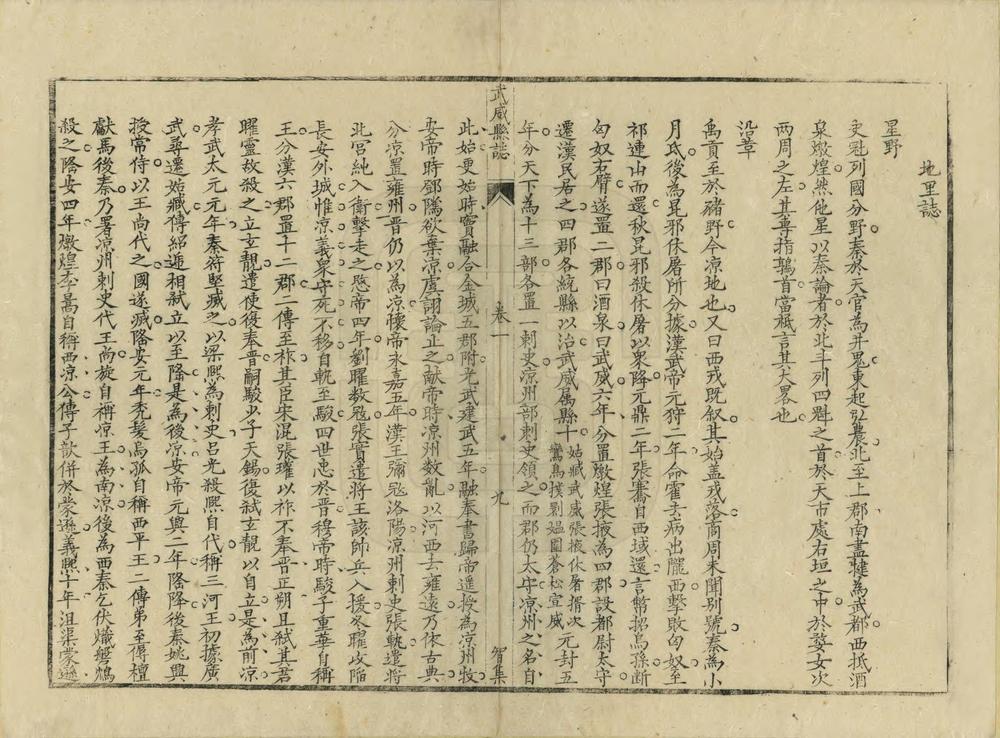 地里誌
星野
史𠛬列國分野秦於天官為井鬼東起弘農北至上郡南盡犍為武都西抵酒
泉燉煌然他星以秦論者於北斗列四魁之首於天市處右垣之中於婺女次
兩周之左其專指鶉首當柢言其大畧也
沿革
禹貢至於豬野今凉地也又曰西戎既叙其始盖戎落商周未聞别號秦為小
月氐後為昆邪休屠所分據漢武帝元狩二年命霍去病出隴西擊敗匈奴至
祁連山而還秋昆邪殺休屠以衆降元鼎二年張騫自西域還言幣招烏孫断
匈奴右臂遂置二郡曰酒泉曰武威六年分置燉煌張掖為四郡設都尉太守
遷漢民居之四郡各統縣以治武威属縣十姑臧武威張掖休屠揟次鸞鳥撲㔁媪圍蒼松宣威元封五
年分天下為十三部各置一刺史凉州部刺史領之而郡仍太守凉州之名自
武威縣誌 卷一 九 智集
此始更始時竇融合金城五郡附光武建武五年融奉書歸帝遥授為凉州牧
安帝時鄧隲欲棄凉虞詡論正之献帝時凉州数亂以河西去雍遠乃依古典
分凉置雍州晋仍以為凉懐帝永嘉五年漢王彌寇洛陽凉州刺史張軌遣将
北宫純入衛擊走之愍帝四年劉曜数寇張寔遣将王該帥兵入援冬曜攻陥
長安外城惟凉義衆守死不移自軌至駿四世忠於晋穆帝時駿子重華自称
王分漢六郡置十二郡二傳至祚其臣宋混張瓘以祚不奉晋正朔且弑其君
曜靈故殺之立玄靚遣使復奉晋嗣駿少子天錫復弑玄靚以自立是為前凉
孝武太元元年秦苻堅滅之以梁熙為刺史吕光殺熙自代稱三河王初據廣
武尋還姑臧傳紹遞相弑立以至隆是為後凉安帝元興二年隆降後秦姚興
授常侍以王尚代之國遂滅隆安元年禿髪烏孤自稱西平王二傳弟至傉檀
献馬後秦乃署凉州刺史代王尚旋自稱凉王為南凉後為西秦乞伏熾磐鴆
殺之隆安四年燉煌李暠自稱西凉公傳子歆併於蒙遜義熙十年沮渠蒙遜